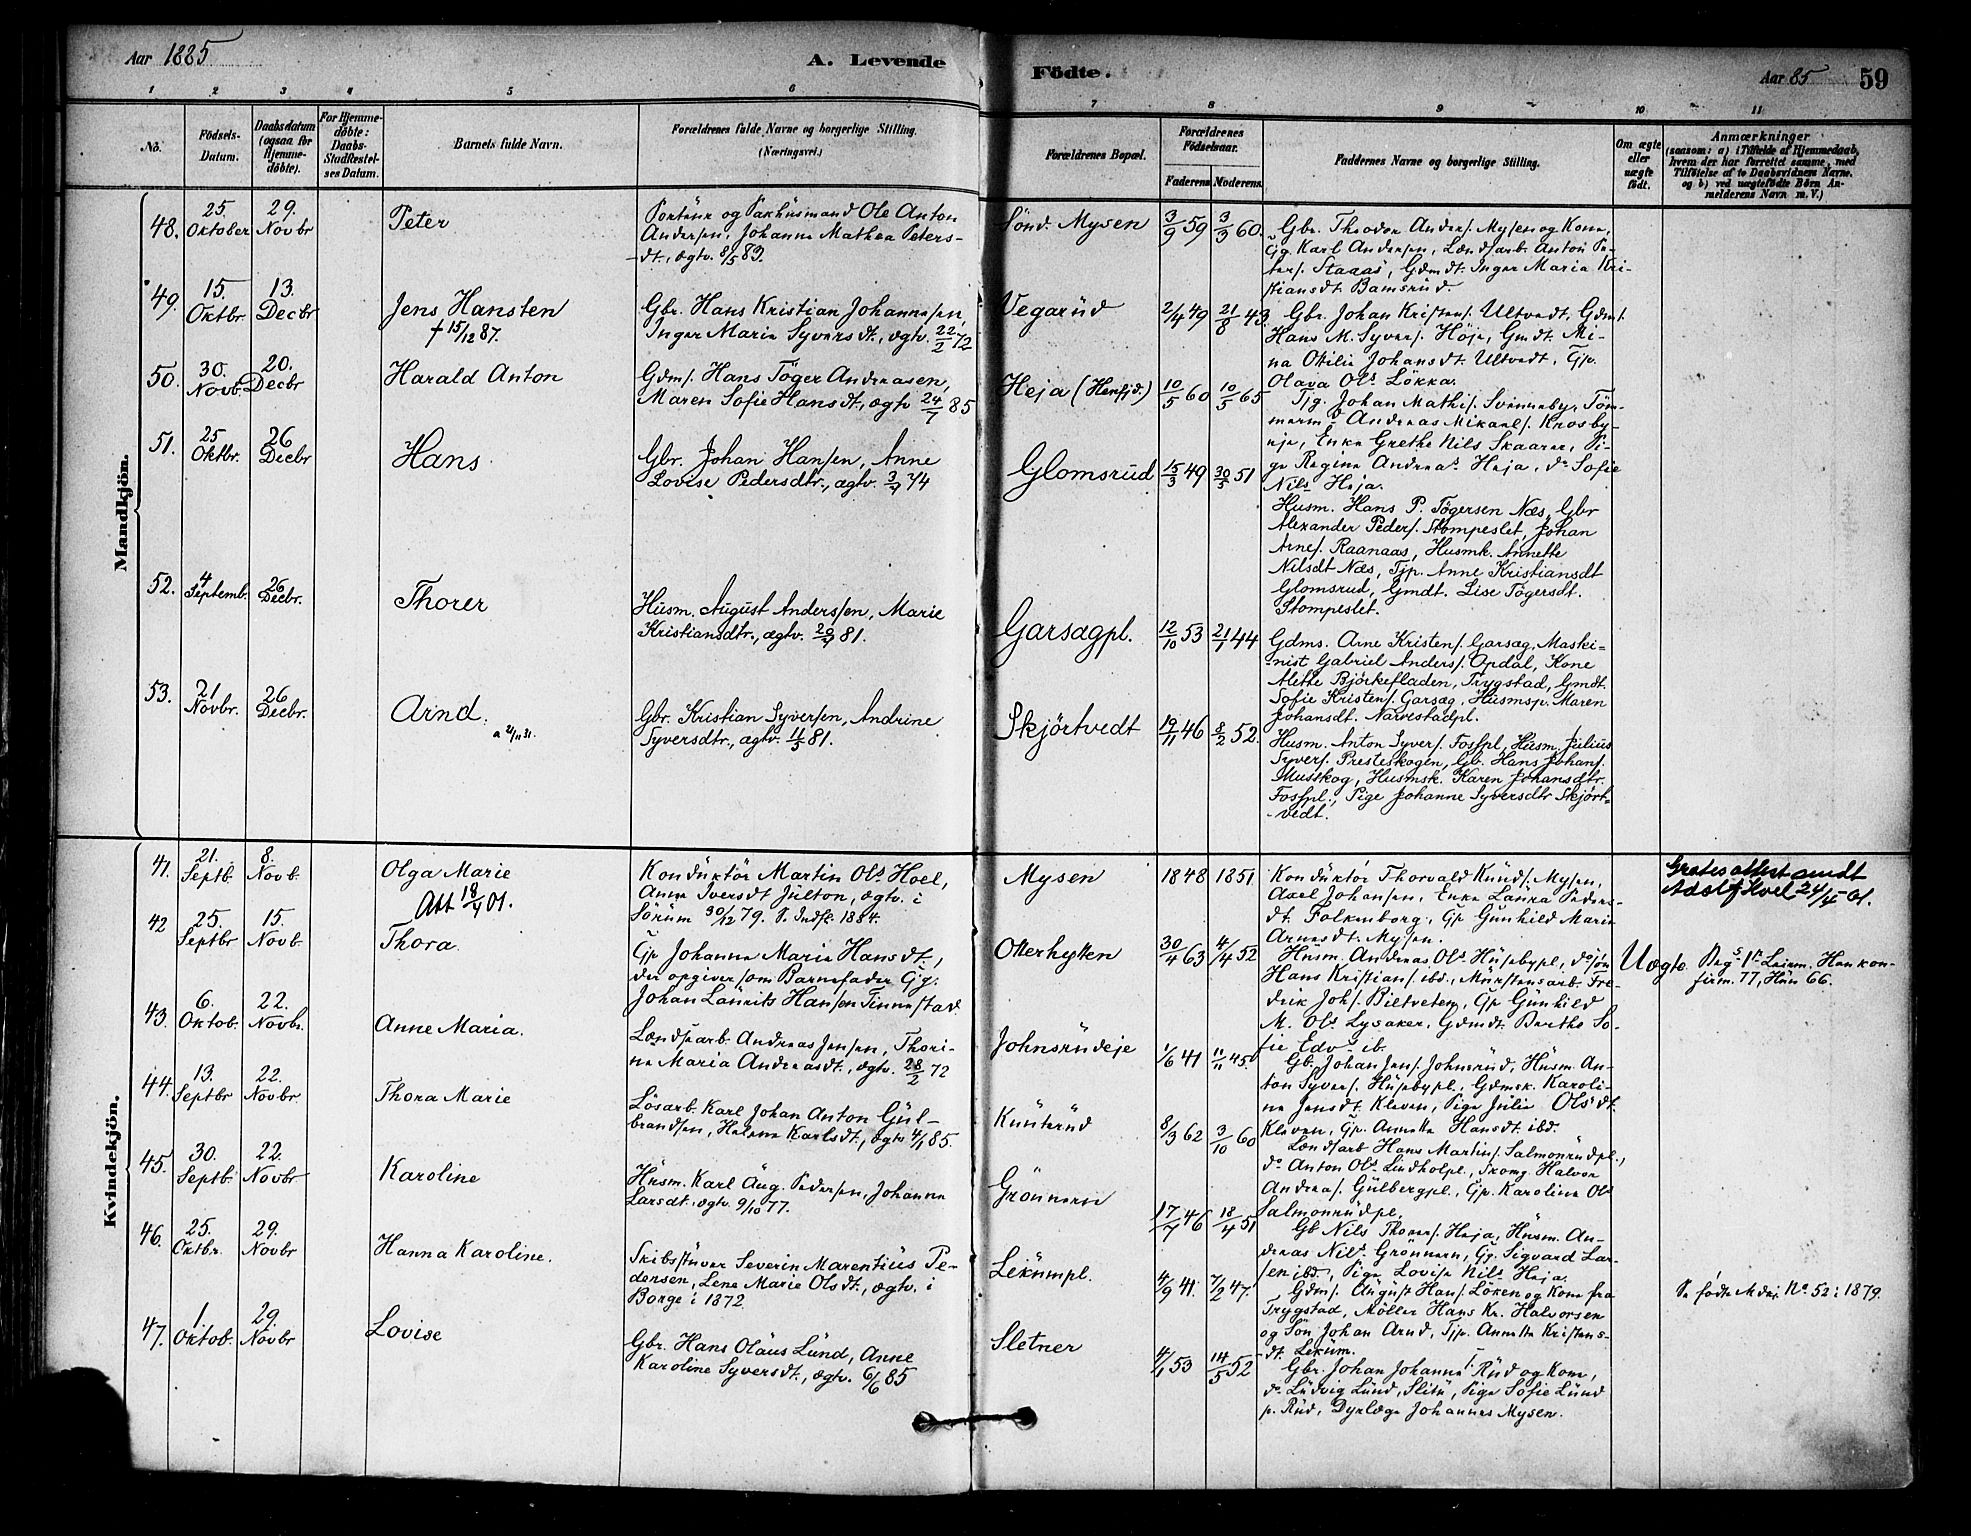 Aar 1885
A. Levende Födte.
Aar 85 59
1 2 3 4 5 6 7 8 9 10 11
No.
Födsels-Datum.
Daabsdatum (ogsaa for Hjemmedöbte).
For Hjemmedöbte: Daabs-Stadfæstelses Datum.
Barnets fulde Navn.
Forældrenes fulde Navne og borgerlige Stilling.
(Næringsvei.)
Forældrenes Bopæl.
Forældrenes Födselsaar.
Faderens Moderens
Faddernes Navne og borgerlige Stilling.
Om ægte eller uægte födt.
Anmærkninger
(saasom: a) i Tilfælde af Hjemmedaab,
hvem der har forrettet samme, med
Tilföielse af to Daabsvidners Navne.
og b) ved uægtefödte Börn Anmelderens Navn m. V.)
Mandkjön.
48. 25. Oktober 29. Novbr Peter
Portönr og Pakhusmand Ole Anton
Andersen, Johanne Mathea Peters-
dt., ægtv. 8/5 83.
Sönd. Mysen 3/9 59 3/3 60.
Gbr. Theodor Anders. Mysen og Kone,
Gg Karl Andersen, Landsarb. Anton Pe-
ters. Staaas, Gdmdt. Inger Maria Kri-
stiansdt. Bamsrud.
49. 15. Oktbr. 13. Decbr Jens Hansten
† 15/12 87.
Gbr. Hans Kristian Johannesen
Inger Maria Syversdt., ægtv. 22/2 72
Vegarud 2/4 49 21/8 43.
Gbr. Johan Kristens. Ultvedt, Gdms.
Hans M. Syvers. Höje, Gmdt. Mi-
na Otilie Johansdt. Ultvedt, Tjp.
Olava Ols. Lökka.
50. 30. Novb. 20. Decbr Harald Anton
Gdms. Hans Töger Andreasen,
Maren Sofie Hansdt., ægtv 24/7 85
Heja (Henfjd.) 10/5 60 10/5 65
Tjg. Johan Mathis. Svinneby, Töm-
merm. Andreas Mikael. Krosby-
eje, Enke Grethe Nils Skaarer, Pi-
ge Regine Andreas. Heja, do Sofie
Nils. Heja.
51. 25 Oktbr. 26 Decbr Hans
Gbr. Johan Hansen, Anne
Lovise Pedersdtr., ægtv. 3/7 74
Glomsrud 15/3 49 30/5 51
Husm. Hans P. Tögersen Næs, Gbr
Alexander Peders. Stompeslet, Johan
Arnes. Raanaas, Husmk. Annette
Nilsdt Næs, Tjp. Anne Kristiansdt
Glomsrud, Gmdt. Lise Tögersdt.
Stompeslet.
52. 4 Septemb. 26 Decbr. Thorer
Husm. August Anderssen, Marie
Kristiansdtr., ægtv. 20/7 81.
Garsagpl. 12/10 53 21/1 44
Gdms. Arne Kristens. Garsæg, Maski-
nist Gabriel Anders. Opdal, Kone
Alette Björkefladen, Trygstad, Gmdt.
Sofie Kristens. Garsæg, Husmsp. Maren
Johansdt. Narvestadpl.
53. 21 Novbr. 26 Decbr. Arnd.
a 21/11 31.
Gbr. Kristian Syversen, Andrine
Syversdtr., ægtv. 11/5 81.
Skjörtvedt 19/11 46 8/2 52.
Husm. Anton Syvers. Fosspl, Husm. Julius
Syvers. Presteskogen, Gb. Hans Johans.
Musskog, Husmsk. Karen Johansdtr.
Fosspl., Pige Johanne Syversdtr Skjört-
vedt.
Kvindekjön.
41. 21. Septb. 8. Novb. Olga Marie
Att 18/4 01.
Konduktör Martin Ols. Hoel,
Anne Iversdt Julton, ægtv. i
Sörum 30/12 79. P. Indfl. 1884.
Mysen 1848 1851.
Konduktör Thorvald Knuds. Mysen,
Axel Johansen, Enke Laura Peders-
dt. Falkenborg, Gp Gunhild Marie
Arnesdt. Mysen.
Gratis attest sendt
Adolf Hoel 24/4 01.
42 25. Septbr 15. Novb. Thora.
Gp Johanne Marie Hansdt.,
der opgiver som Barnefader Gg.
Johan Laurits Hansen Finnestad
Otterhytten 30/4 63 4/4 52
Husm. Andreas Ols. Husebypl, do sön
Hans Kristians. ibd., Murstensarb. Fre-
drik Johs. Bietveten, Gp Gunhild
M. Ols. Lysaker, Gdmdt. Berthe So-
fie Edvs. ib.
Uægte Beg's 1e Leirm. Han kon-
firm. 77, Hun 66.
43. 6. Oktob. 22. Novbr. Anne Maria.
Landsarb. Andreas Jensen, Thori-
ne Maria Andreasdt., ægtv. 28/2 72
Johnsrudeje 1/6 41 11/11 45.
Gb. Johan Jens. Johnsrud, Husm. An-
ton Syvers. Husebypl., Gdmsk. Karoli-
ne Jensdt. Kleven, Pige Julie Olsdt.
Kleven, Gp. Annette Hansdt. ibd.
44. 13. Septbr 22. Novbr. Thora Marie
Lösarb. Karl Johan Anton Gul-
brandsen, Helene Karlsdt., ægtv 4/1 85.
Kunterud 8/3 62 3/10 60
Landsarb Hans Martins. Salmonrudpl.,
do Anton Ols. Lindholpl., Skomg. Halvor
Andreas. Gulbergpl., Gp. Karoline Ols
Salmonrudpl.
45. 30. Septb. 22. Novbr Karoline
Husm. Karl Aug. Pedersen, Johanne
Larsdt., ægtv. 9/10 77.
Grönnern 17/7 46 18/4 51
Gb Nils Thores. Heja, Husm. An-
dreas Nils. Grönnern, Gg. Sigvard Lar-
sen ibd., Pige Lovise Nils. Heja.
46. 25. Oktbr. 29. Novbr Hanna Karoline.
Skibsstuver Severin Marentius Pe-
dersen, Lene Marie Olsdt., ægtv. i
Borge i 1872.
Lekumpl. 4/9 41. 7/2 47.
Gdms. August Hans. Löken og Kone fra
Trygstad, Möller Hans Kr. Halvorsen
og Sön Johan Arnd, Tjp. Annette Kristens-
dt. Lekum.
Se födte Mdkj. No. 52 i 1879.
47. 1. Oktob. 29. Novbr Lovise
Gbr. Hans Olaus Lund, Anne
Karoline Syversdt., ægtv. 6/6 85
Sletner 4/1 53 14/5 52
Gbr. Johan Johannes. Rud og Kone,
do Ludvig Lund, Slitu, Pige Sofie Lund
p. Rud, Dyrlæge Johannes Mysen.